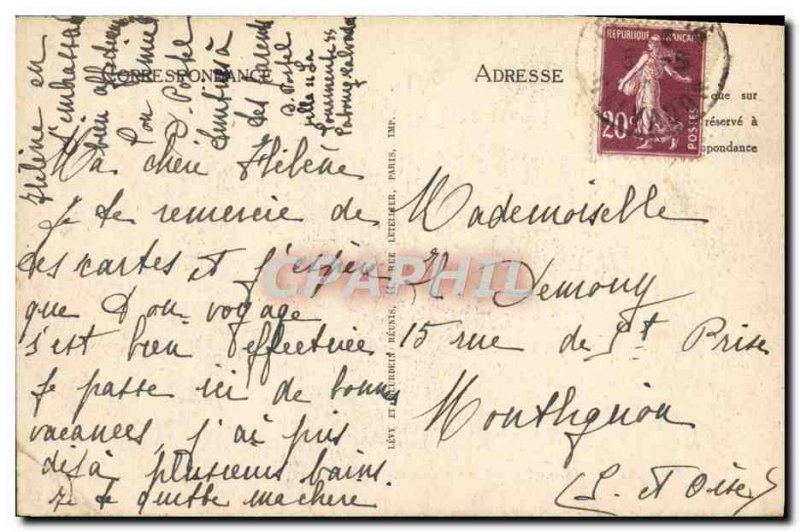 CORRESPONDANCE
Ma chère Hélène
Je te remercie de
tes cartes et j'espère
que ton voyage
s'est bien effectuée
Je passe ici de bonnes
vacances, j'ai pris
déjà plusieurs bains.
Je te quitte ma chère
Hélène en
t'embrassant
bien affectueusement
Ton amie
D. Postel
tes parents
D. Postel
Villa La
Tourmente
Calvados
LÉVY ET NEURDEIN RÉUNIS, 44, RUE LETELLIER, PARIS, IMP.
ADRESSE
que sur
réservé à
pondance
REPUBLIQUE FRANÇAISE
20c
POSTES
Mademoiselle
H. Demony
15 rue de St Prise
Montlignon
(S. et Oise)
CPAPHIL